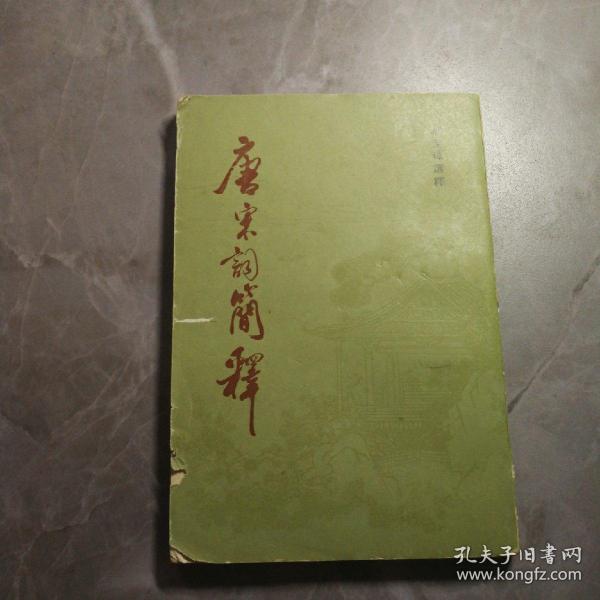 唐宋詞簡釋
選釋
孔夫子旧書网
www.kongfz.com